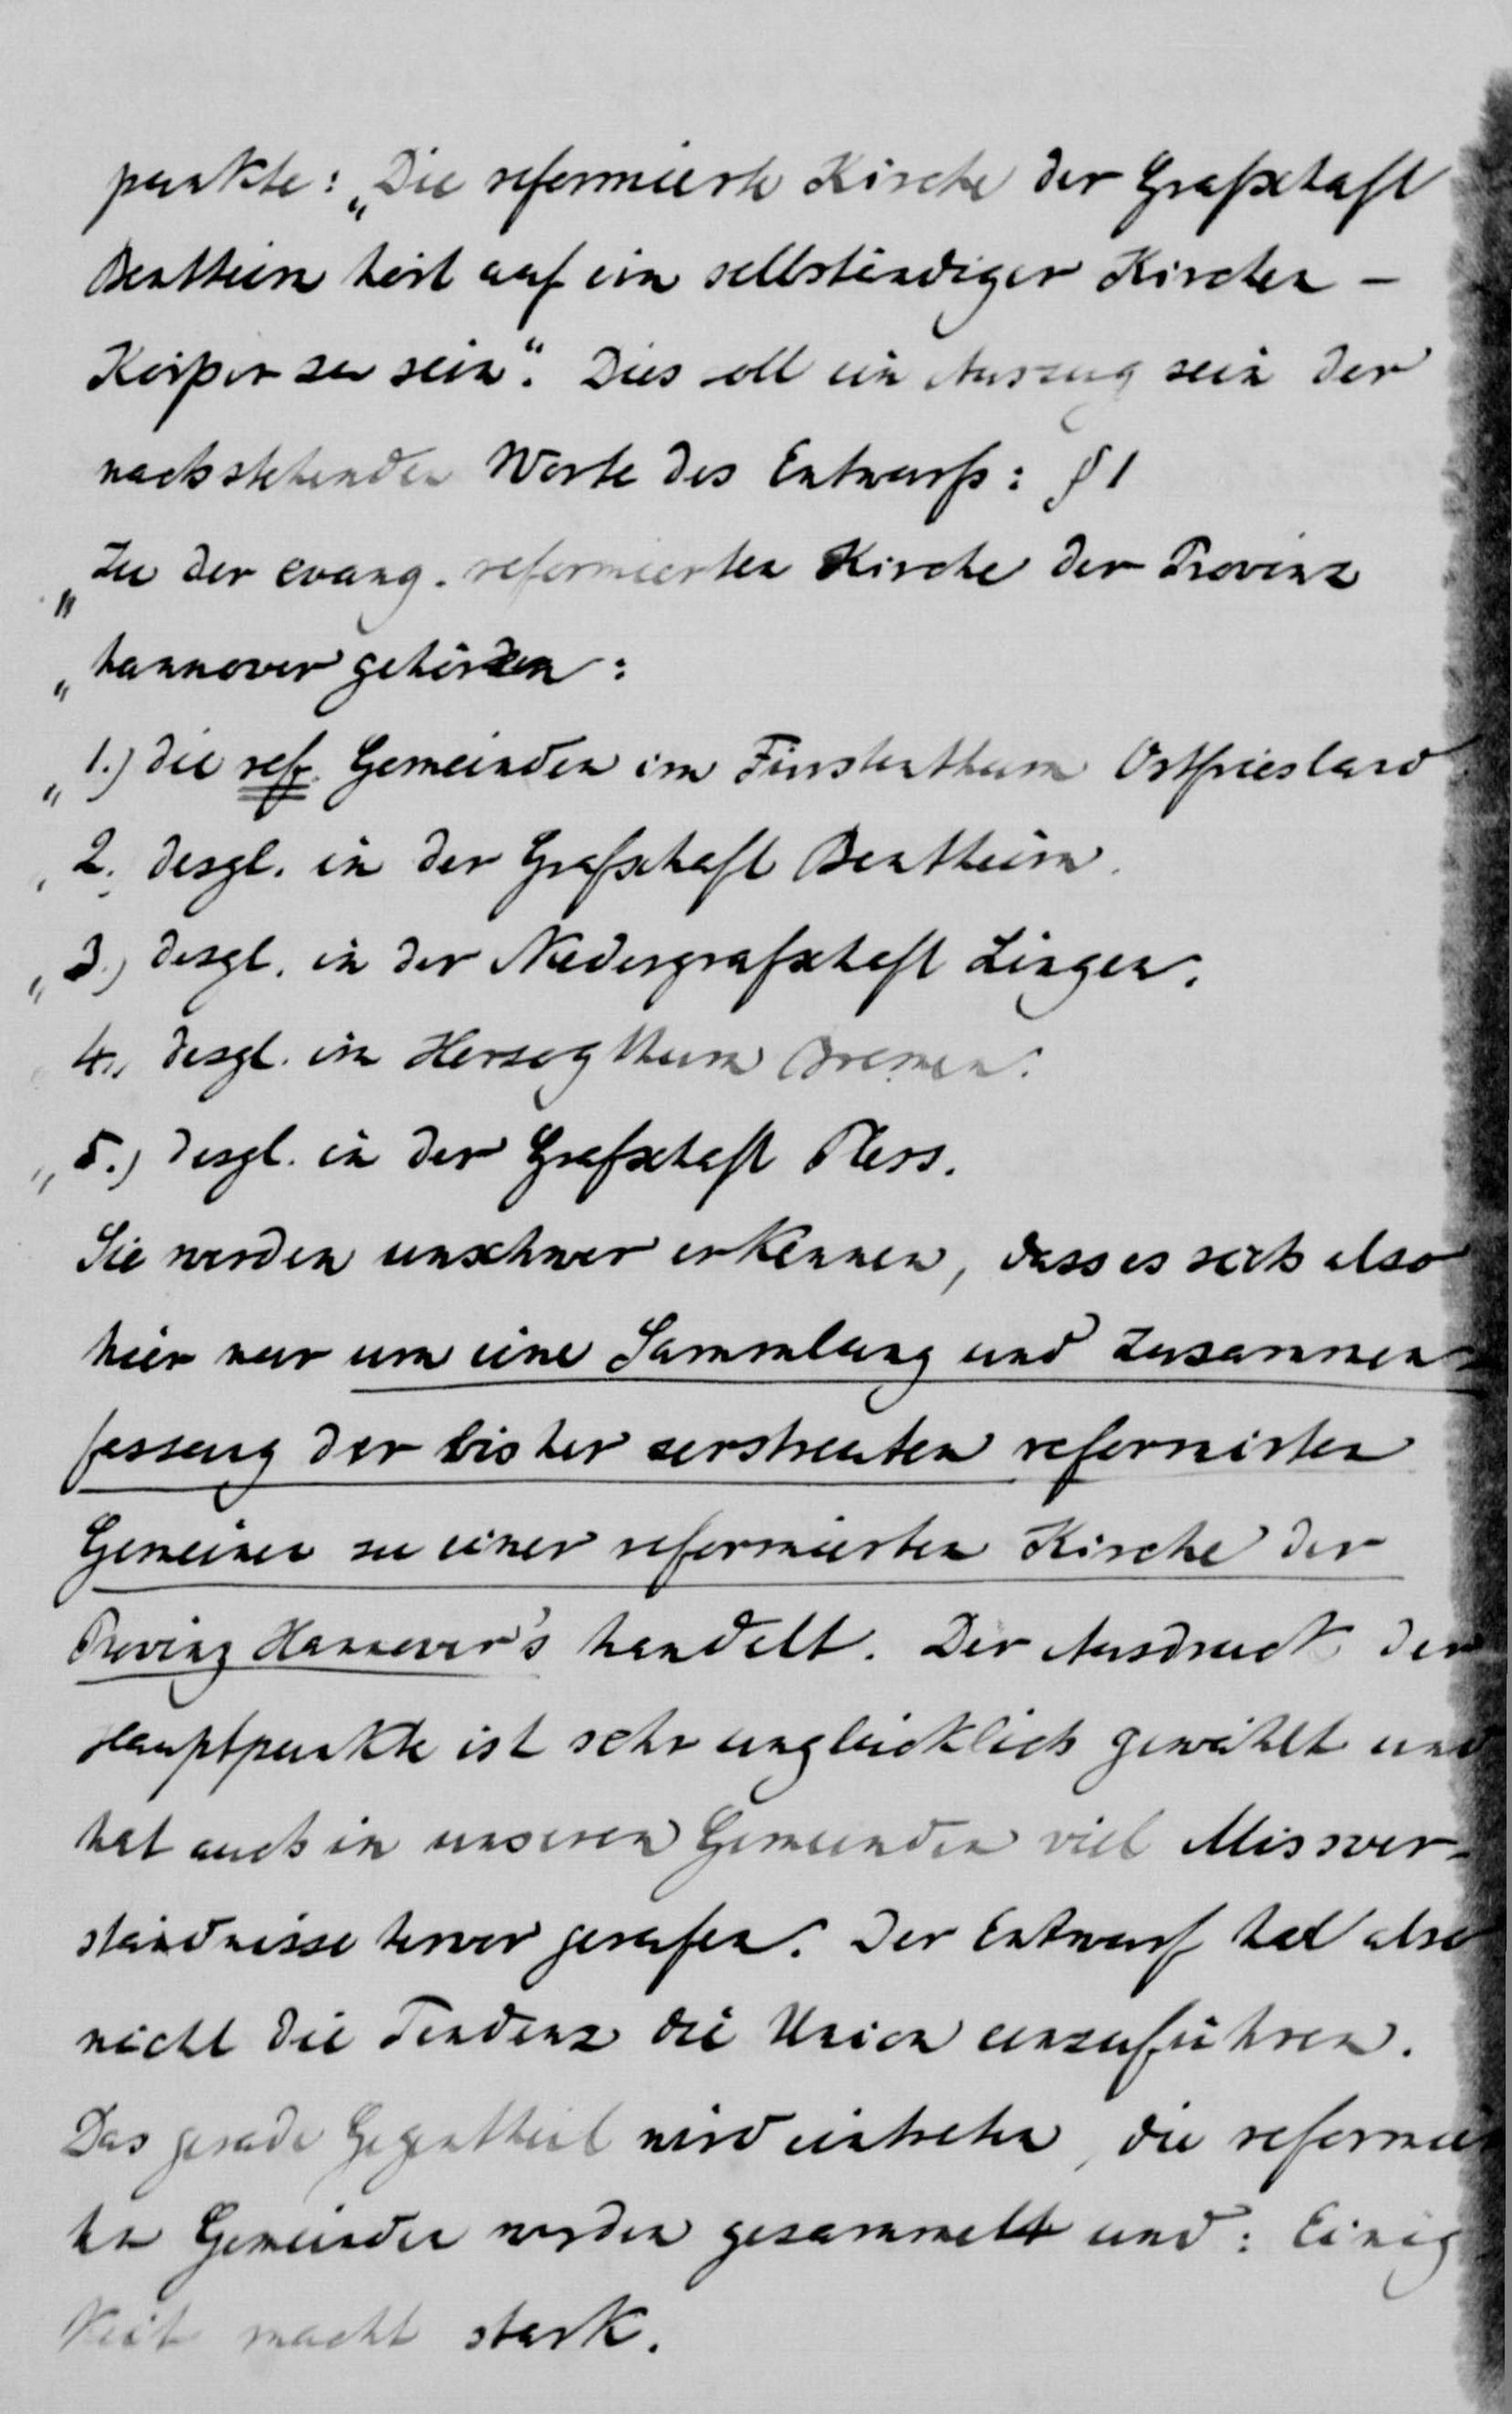 punkte: „Die reformierte Kirche der Grafschaft
Bentheim hört auf ein selbständiger Kirchen-
Körper zu sein“. Dies soll ein Auszug sein der
nachstehenden Worte des Entwurfs: § 1
„Zu der evang. reformierten Kirche der Provinz
„hannover gehören:
„1.) die ref. Gemeinden im Fürstenthum Ostfriesland
„2. desgl. in der Grafschaft Bentheim.
„3.) desgl. in der Niedergrafschaft Lingen.
4., desgl. im Herzogthum Bremen.
„5.) desgl. in der Grafschaft Pless.
Sie werden unschwer erkennen, dass es sich also
hier nur um eine Sammlung und Zusammen-
fassung der bisher zerstreuten reformirten
Gemeinen zu einer reformierten Kirche der
Provinz Hannover's handelt. Der Ausdruck der
Hauptpunkte ist sehr unglücklich gewählt und
hat auch in unseren Gemeinden viel Missver-
ständnisse hervor gerufen. Der Entwurf hat also
nicht die Tendenz die Union einzuführen.
Das gerade Gegentheil wird eintreten, die reformier
ten Gemeinden werden gesammelt und: Einig
keit macht stark.